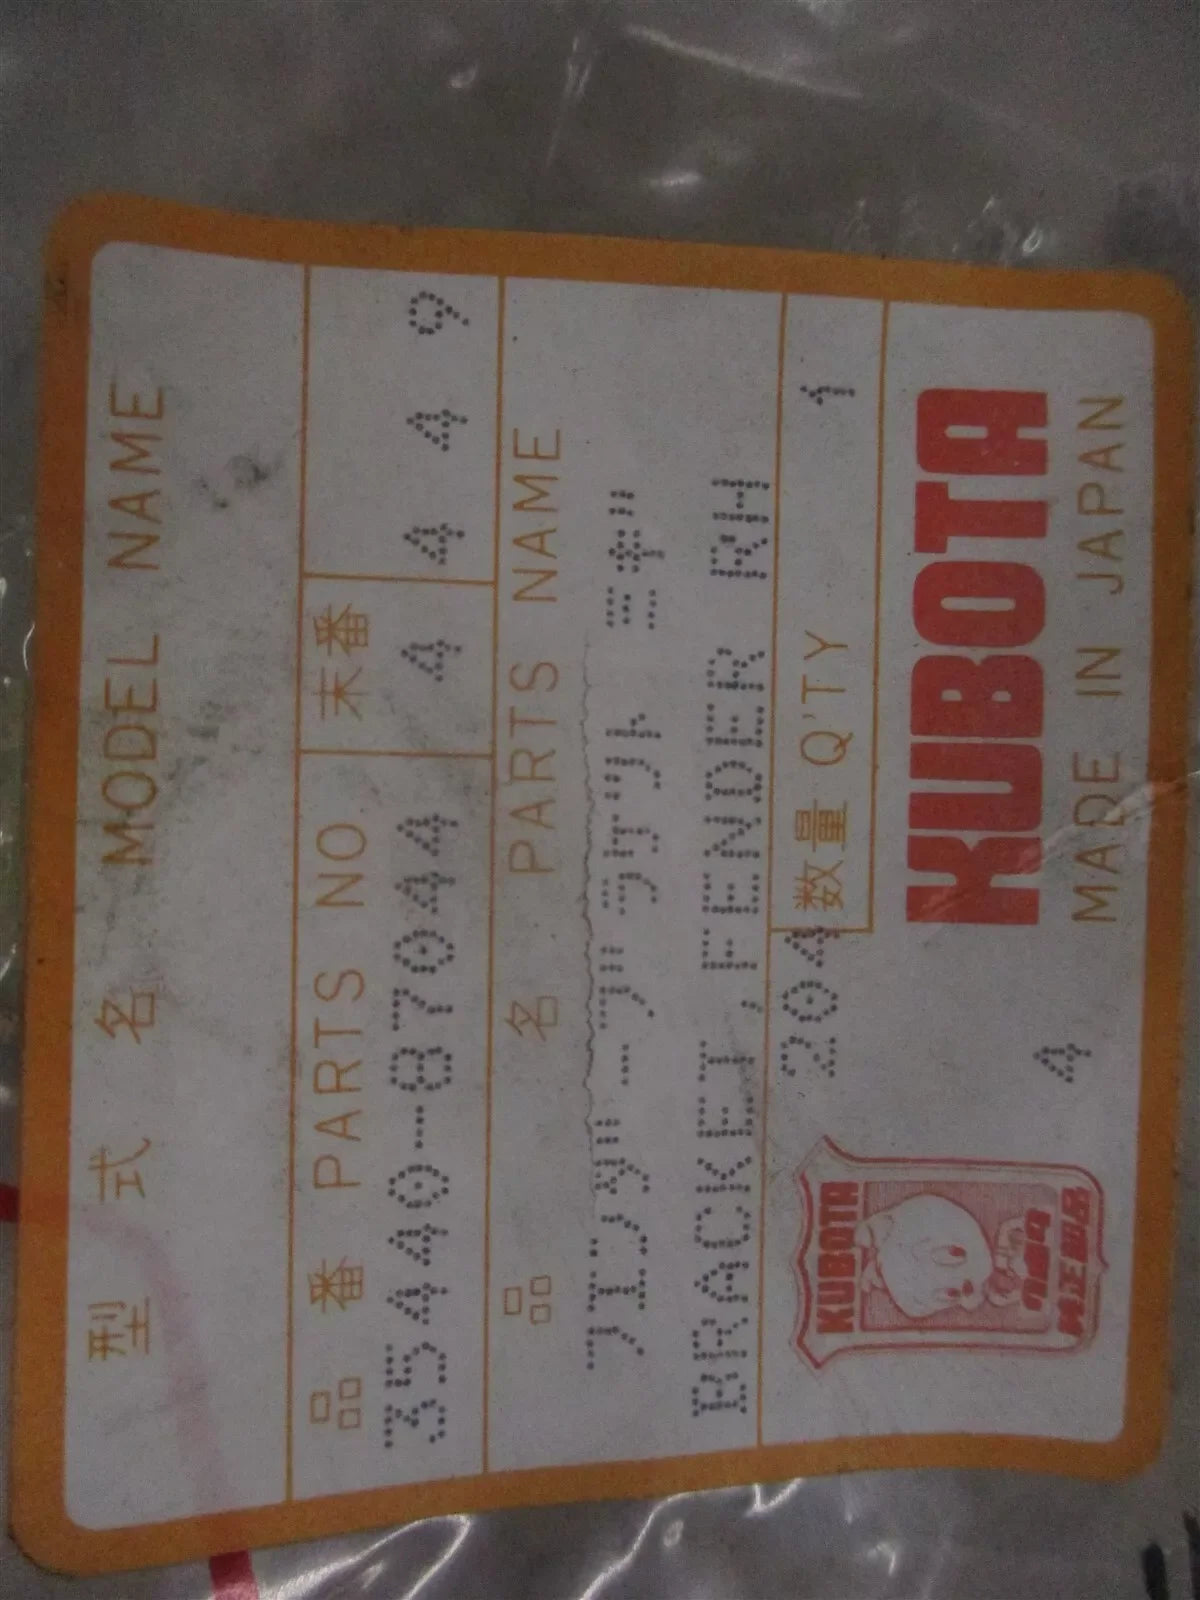 型式名 MODEL NAME
品番 PARTS NO 末番
35440-87044 4 4 4 9
品名 PARTS NAME
ミギ
BRACKET,FENDER RH
204 数量 Q'TY 1
KUBOTA
クボタ
純正部品
KUBOTA
4 MADE IN JAPAN